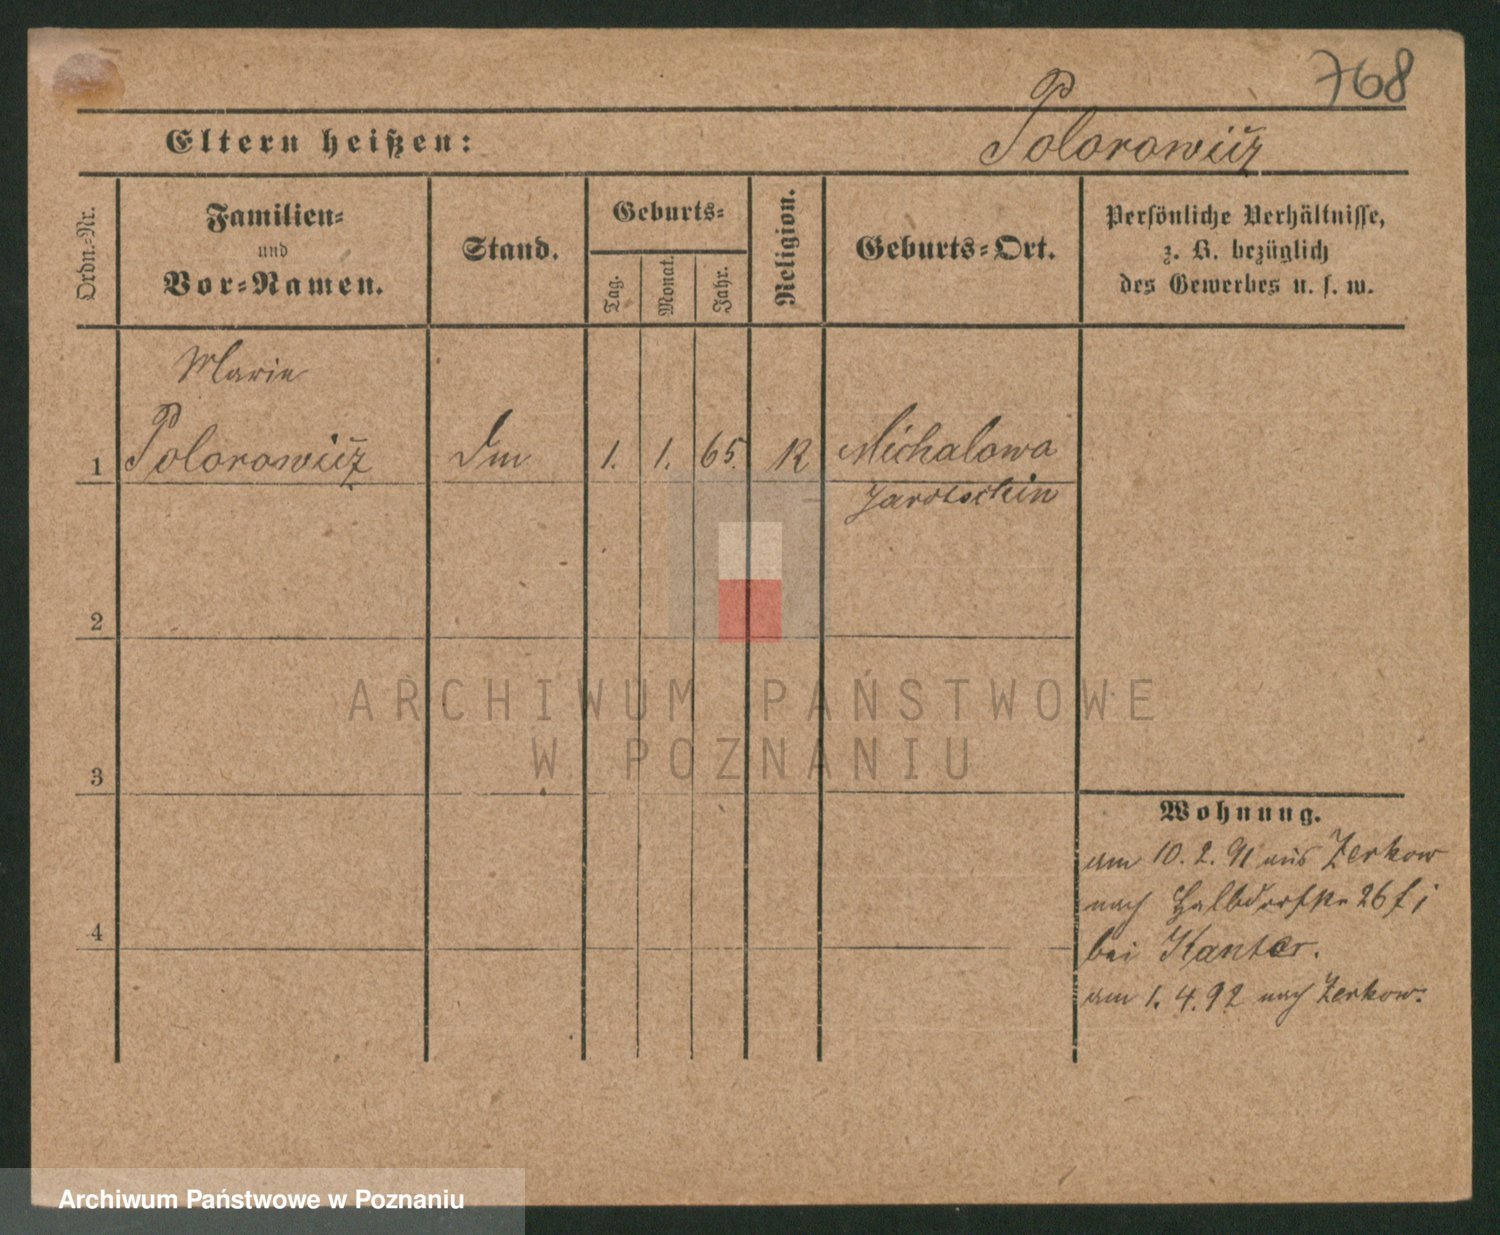 768
Eltern heißen:
Polorowicz
Ordn.-Nr.
Familien-
und
Vor-Namen.
Stand.
Geburts-
Tag.
Monat.
Jahr.
Religion.
Geburts-Ort.
Persönliche Verhältnisse,
z. B. bezüglich
des Gewerbes u. s. w.
Marie
1 Polorowicz 1. 1. 65. K Michalowa
Jarotschin
2
3
4
Wohnung.
am 10. 2. 91 aus Zerkow
nach Halbdorfstr 26
bei Kantor.
am 1. 4. 92 nach Zerkow.
ARCHIWUM PAŃSTWOWE
W POZNANIU
Archiwum Państwowe w Poznaniu